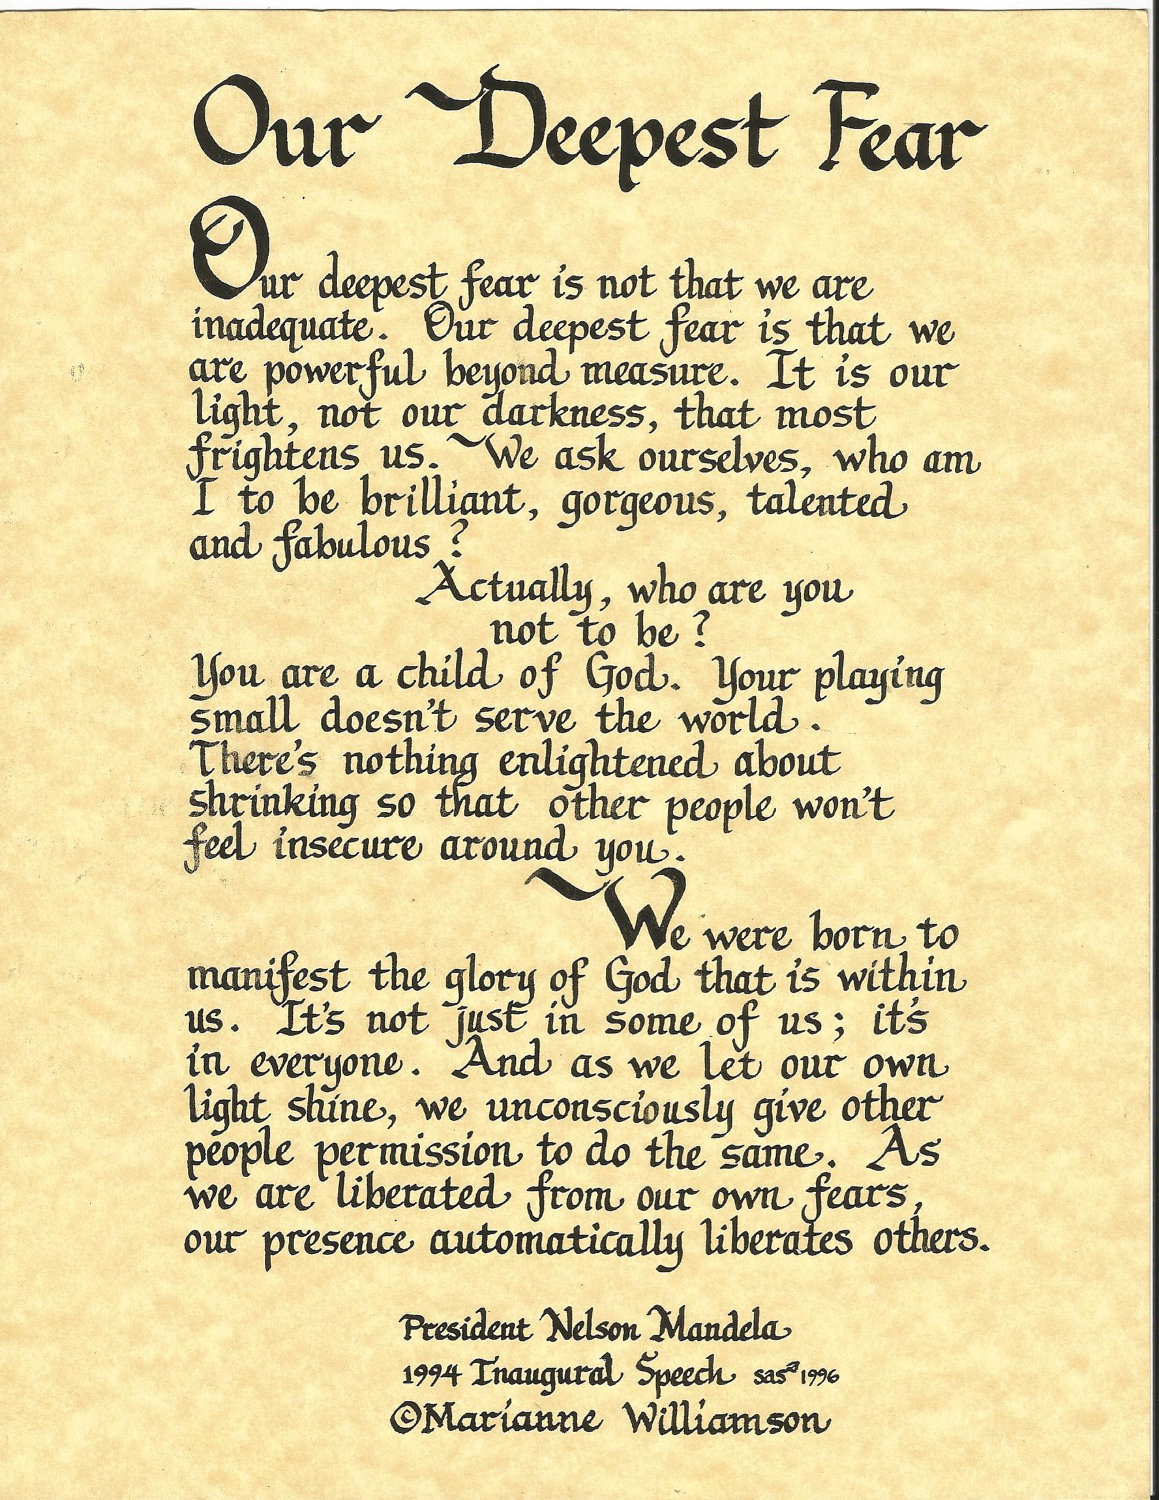 Our Deepest Fear
Our deepest fear is not that we are
inadequate. Our deepest fear is that we
are powerful beyond measure. It is our
light, not our darkness, that most
frightens us. We ask ourselves, who am
I to be brilliant, gorgeous, talented
and fabulous?
Actually, who are you
not to be?
You are a child of God. Your playing
small doesn't serve the world.
There's nothing enlightened about
shrinking so that other people won't
feel insecure around you.
We were born to
manifest the glory of God that is within
us. It's not just in some of us; it's
in everyone. And as we let our own
light shine, we unconsciously give other
people permission to do the same. As
we are liberated from our own fears,
our presence automatically liberates others.
President Nelson Mandela
1994 Inaugural Speech sas 1996
©Marianne Williamson